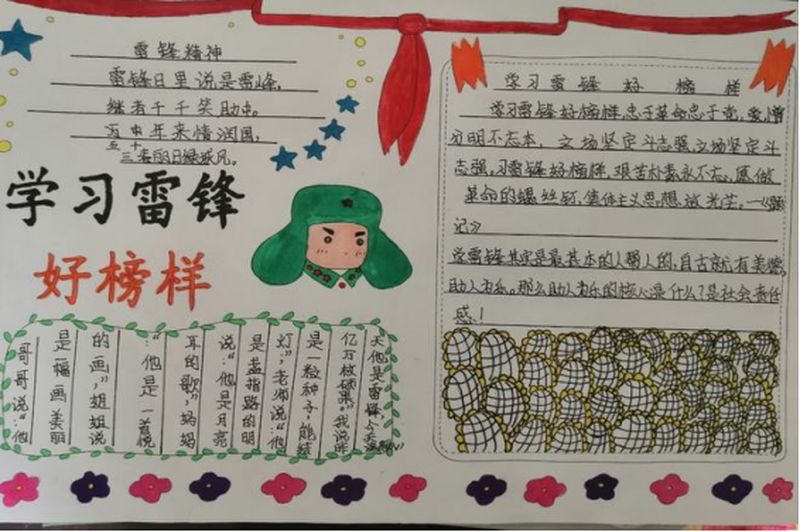 雷锋精神
雷锋日里说是雷峰，
继者千千笑助中。
年来情润国，
五十
三春的日绿城风。
学习雷锋
好榜样
学习雷锋好榜样
学习雷锋好榜样，忠于革命忠于党，爱憎
分明不忘本，立场坚定斗志强立场坚定斗
志强。习雷锋好榜样，艰苦朴素永不忘，愿做
革命的螺丝钉，集体主义思想放光芒。一《题
记》
学雷锋其实是最基本的人帮人的，自古就有美德，
助人为乐。那么助人为乐的核心是什么？是社会责任
感！
哥哥说：“他
是一幅画美丽
的画”，姐姐说
：“他是一首悦
耳的歌”，妈妈
说：“他是月亮
是盏指路的明
灯”，老师说：“他
是一粒种子，能结
亿万枚硕果”。我说昨
天他是雷锋今天